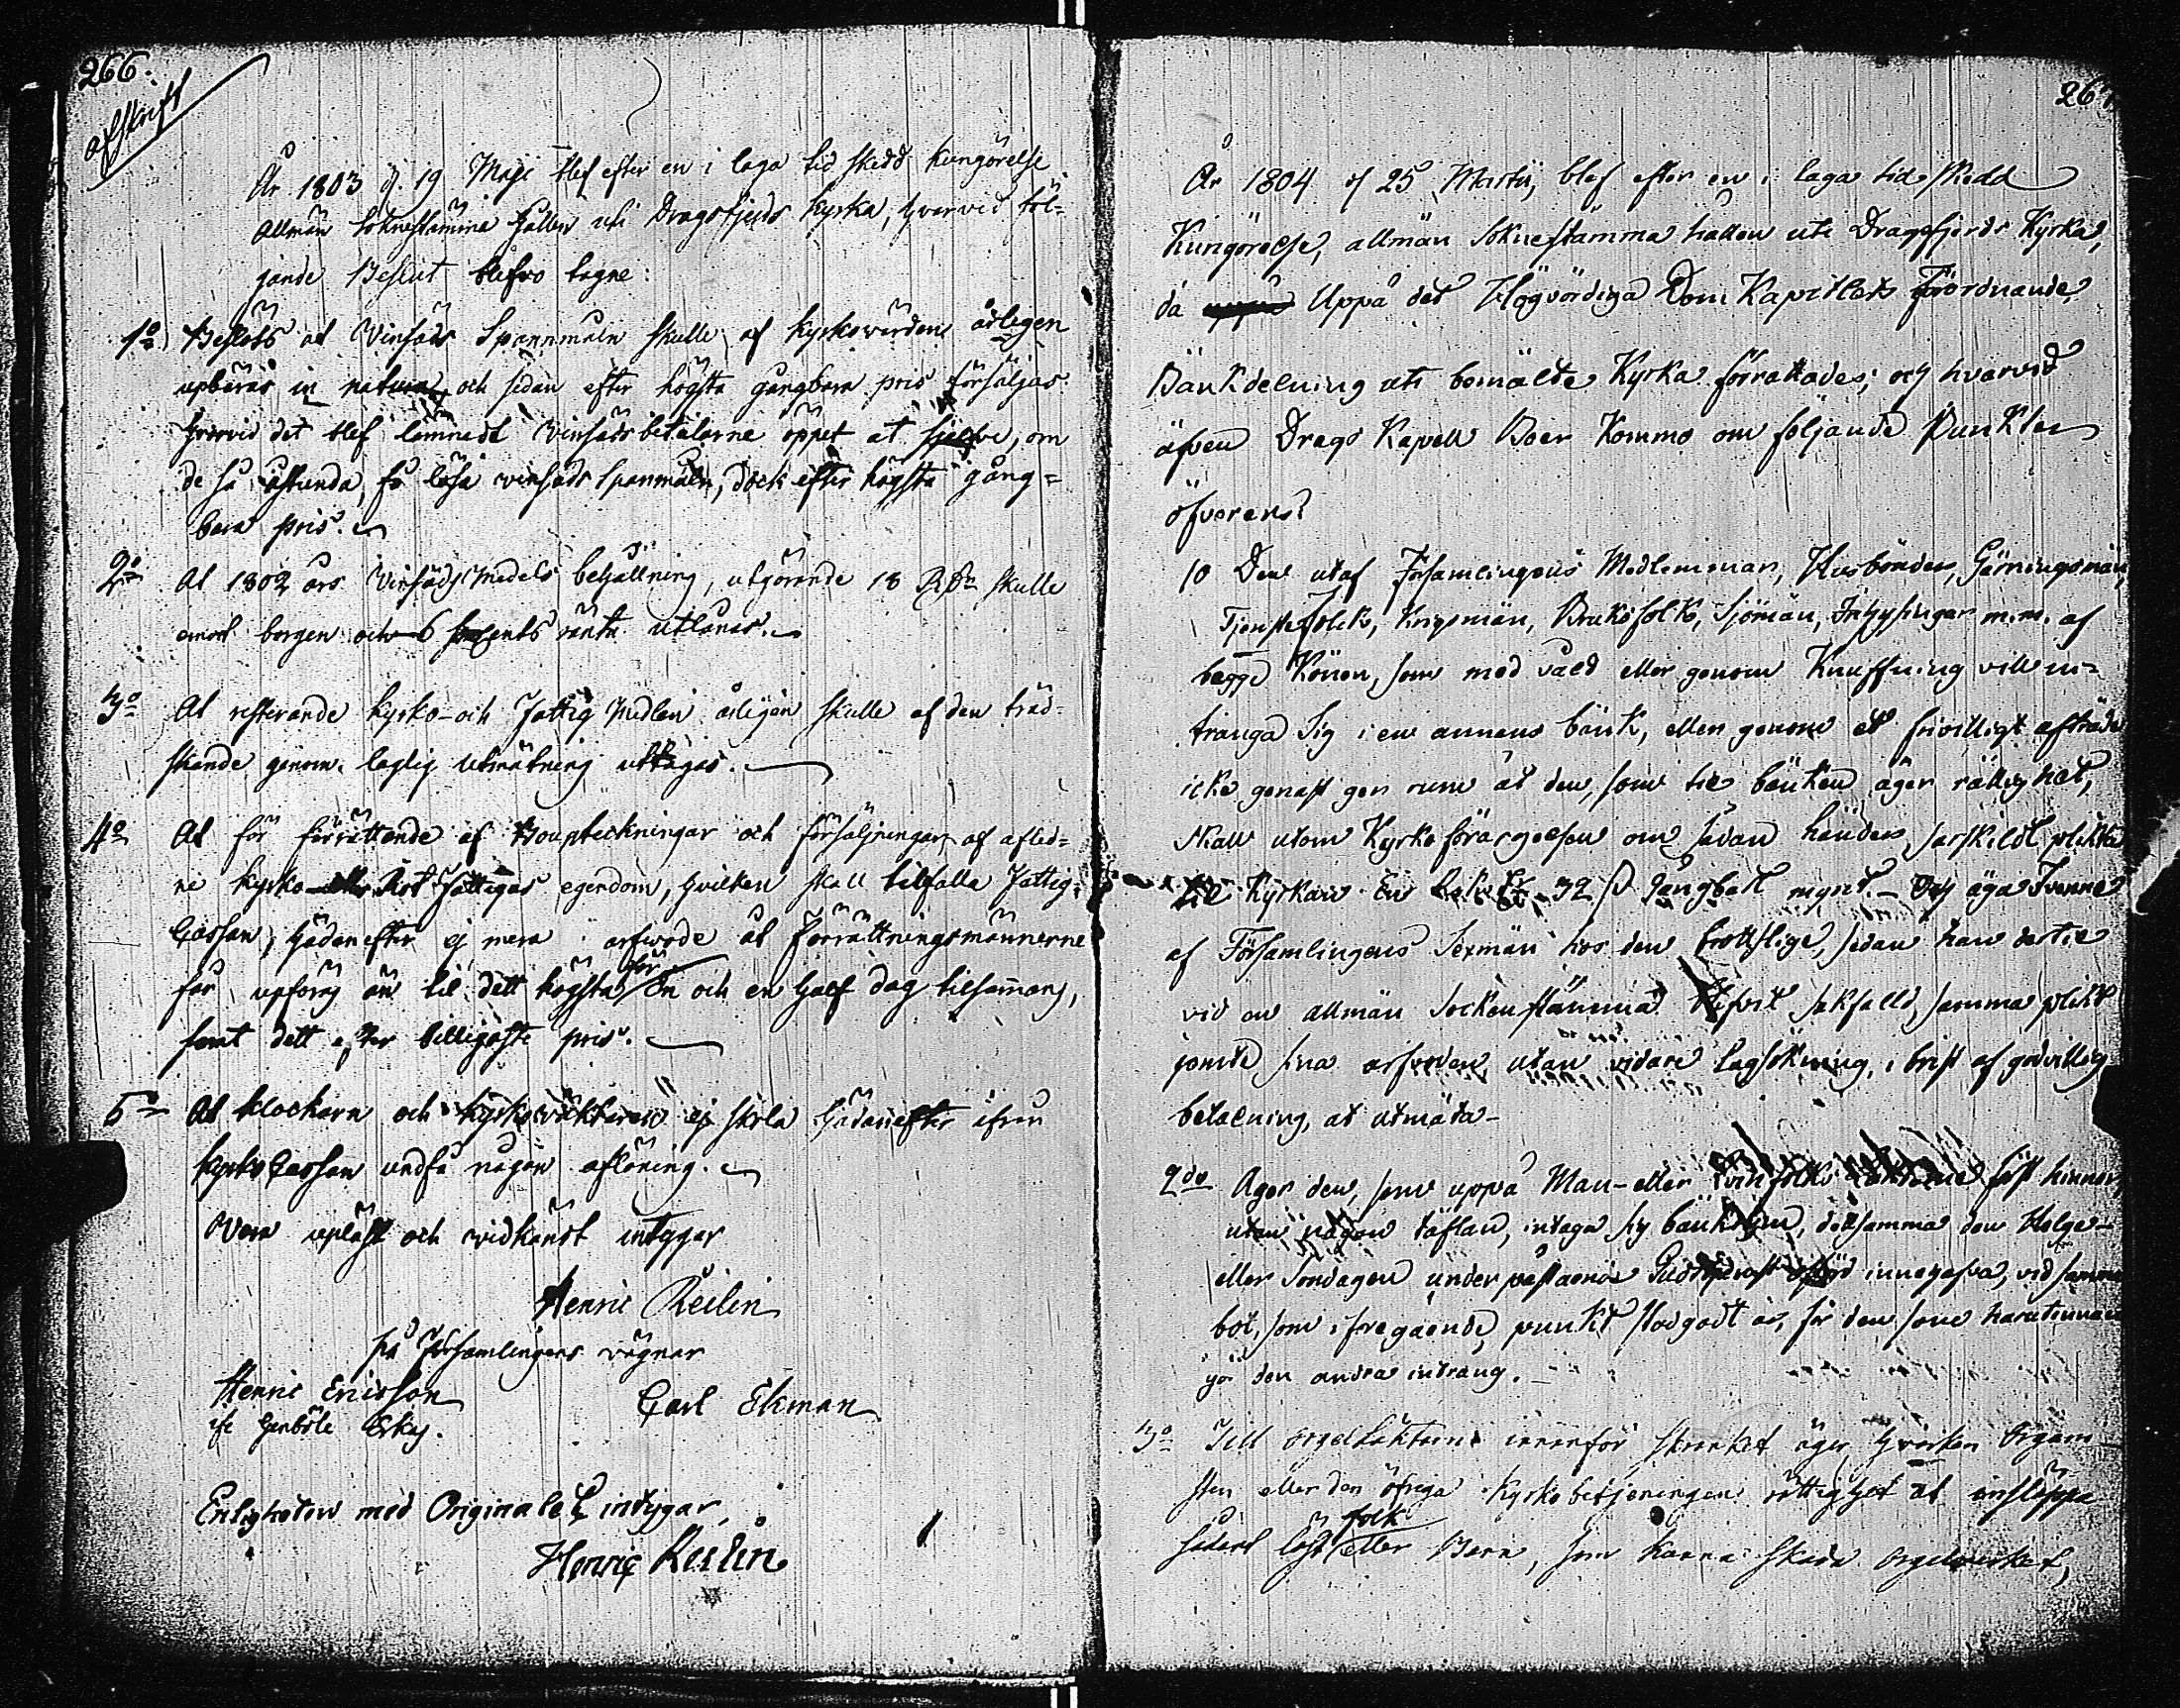 266.
afskrift
År 1803 d. 19 Maji blef efter en i laga tid skedd kungörelse
allmän Soknestämma hållen uti Dragsfjerds Kyrka, hvarvid föl=
jande Beslut blefvo tagne:
1o) Beslöts at Vinsäds Spannmåln skulle af Kyrkovärden årligen
upbäras in natura, och sedan efter högsta gångbara pris försäljas.
hvarvid det blef lämnadt vinsädsbetalarne öppet at sjelfve, om
de så åstunda, få lösa vinsäds Spanmåln, dock efter högsta gång=
bara pris.
2o At 1802 års Vinsädsmedels behållning, utgörande 18 Rdr skulle
emot borgen och 6 procents ränta utlånas.
3o At resterande Kyrko- och Fattig Medlen årligen skulle af den tred-
skande genom laglig utmätning uttagas.
4o At för förrättende af Bouptekningar och försäljningar af afled=
ne Kyrko- eller Rot Fattigas egendom, hvilken skall tillfalla Fattig=
Cassan, hädanefter ej mera arfwode åt Förrättningsmännerne
för
får upföras än til dett högsta En och en half dag tilsammans,
samt dett efter billigaste pris.
5o At klockaren och Kyrkowäktaren ej skola hädanefter ifrån
Kyrko Cassan undfå någon aflöning.
Vara upläst och widkändt intygar
Henric Reilin
På Församlingens vägnar
Henric Ericsson
ifr Genböle
Carl Ekman
Enligheten med Originalet intygar,
Henric Reilin
267
År 1804 d 25 Martii, blef efter en i laga tid skedd
Kungörelse, allmän Soknestämma hållen uti Dragsfjerds Kyrka,
då Uppå det Högvördiga Dom Kapitlets Förordnande,
Bänkdelning uti bemälte Kyrka förrättades; och hvarvid
äfven Drags Kapell Boer Kommo om följande Punkter
öfverens:
1o Den utaf Församlingens Medlemmar, Husbönder, Gärningsmän,
Tjenstefolck, Krigsmän, Bruksfolk, Sjömän, Inhysingar m.m. af
bägge Könen, som med våld eller genom Knuffning vill in=
tränga sig i en annans bänk, eller genom et frivilligt afträde
icke genast ger rum åt den, som til bänken äger rättighet,
skall utom Kyrko förargelsen om sådan händer, särskildt plikta
til Kyrkan En 32 s gångbart mynt. - Och äga Tvenne
af Församlingens Sexmän hos den brottslige, sedan han dertil
vid en allmän Sockenstämma blifvit sakfälld, samma plikt
jemte sina arfvoden, utan vidare lagsökning, i brist af godvillig
betalning, at utmäta-
2do Äger den, som uppå Man- eller qvinfolks först hinner,
utan någon täflan, intaga sig bänkrum, detsamma den Helge-
eller Söndagen under påstående innehafva, vid samma
bot, som i föregående punkt stadgadt är, för den som
gör den andra intrång.
3o Till orgelläktaren innanför skranket äger hvarken Organi-
sten eller den öfriga Kyrko betjeningen rättighet at insläppa
folk
sådant löst eller Barn, som kunna skada orgelverket,